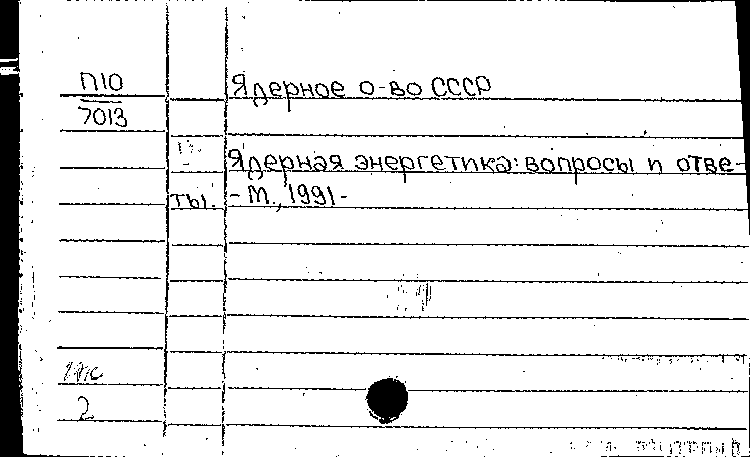 П10
7013
Ядерное о-во СССР
Ядерная энергетика: вопросы и отве-
ты. - М., 1991 -
2